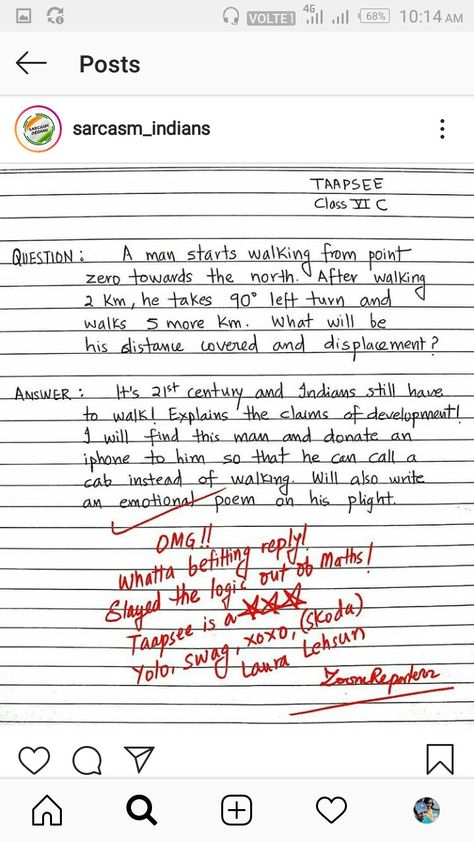 VOLTE1 4G 68% 10:14 AM
Posts
SARCASM INDIANS
sarcasm_indians
TAAPSEE
Class VI C
QUESTION : A man starts walking from point
zero towards the north. After walking
2 Km, he takes 90° left turn and
walks 5 more Km. What will be
his distance covered and displacement?
ANSWER : It's 21st century and Indians still have
to walk! Explains the claims of development!
I will find this man and donate an
iphone to him so that he can call a
cab instead of walking. Will also write
an emotional poem on his plight.
OMG!!
Whatta befitting reply!
Slayed the logic out of Maths!
Taapsee is a
Yolo, swag, xoxo, (Skoda)
Laura Lehsun
ZoomReporterr